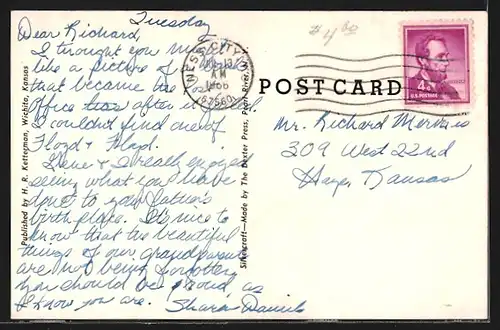 Tuesday
Dear Richard,
I thought you might
like a picture of
that became the
Office after it
I couldn't find one of
Floyd + Floyd.
Gene & I really enjoyed
seeing what you have
done to your father's
birth place. It's nice to
know that the beautiful
things of our grandparents
are not being forgotten
You should be proud as
I know you are. Shara Daniels
Published by H. R. Ketteman, Wichita, Kansas
Silvercraft—Made by The Dexter Press, Pearl River,
NESS CITY
AM
1966
67560
4.00
POST CARD
4¢
U.S. POSTAGE
Mr. Richard
309 West 22nd
Hays, Kansas